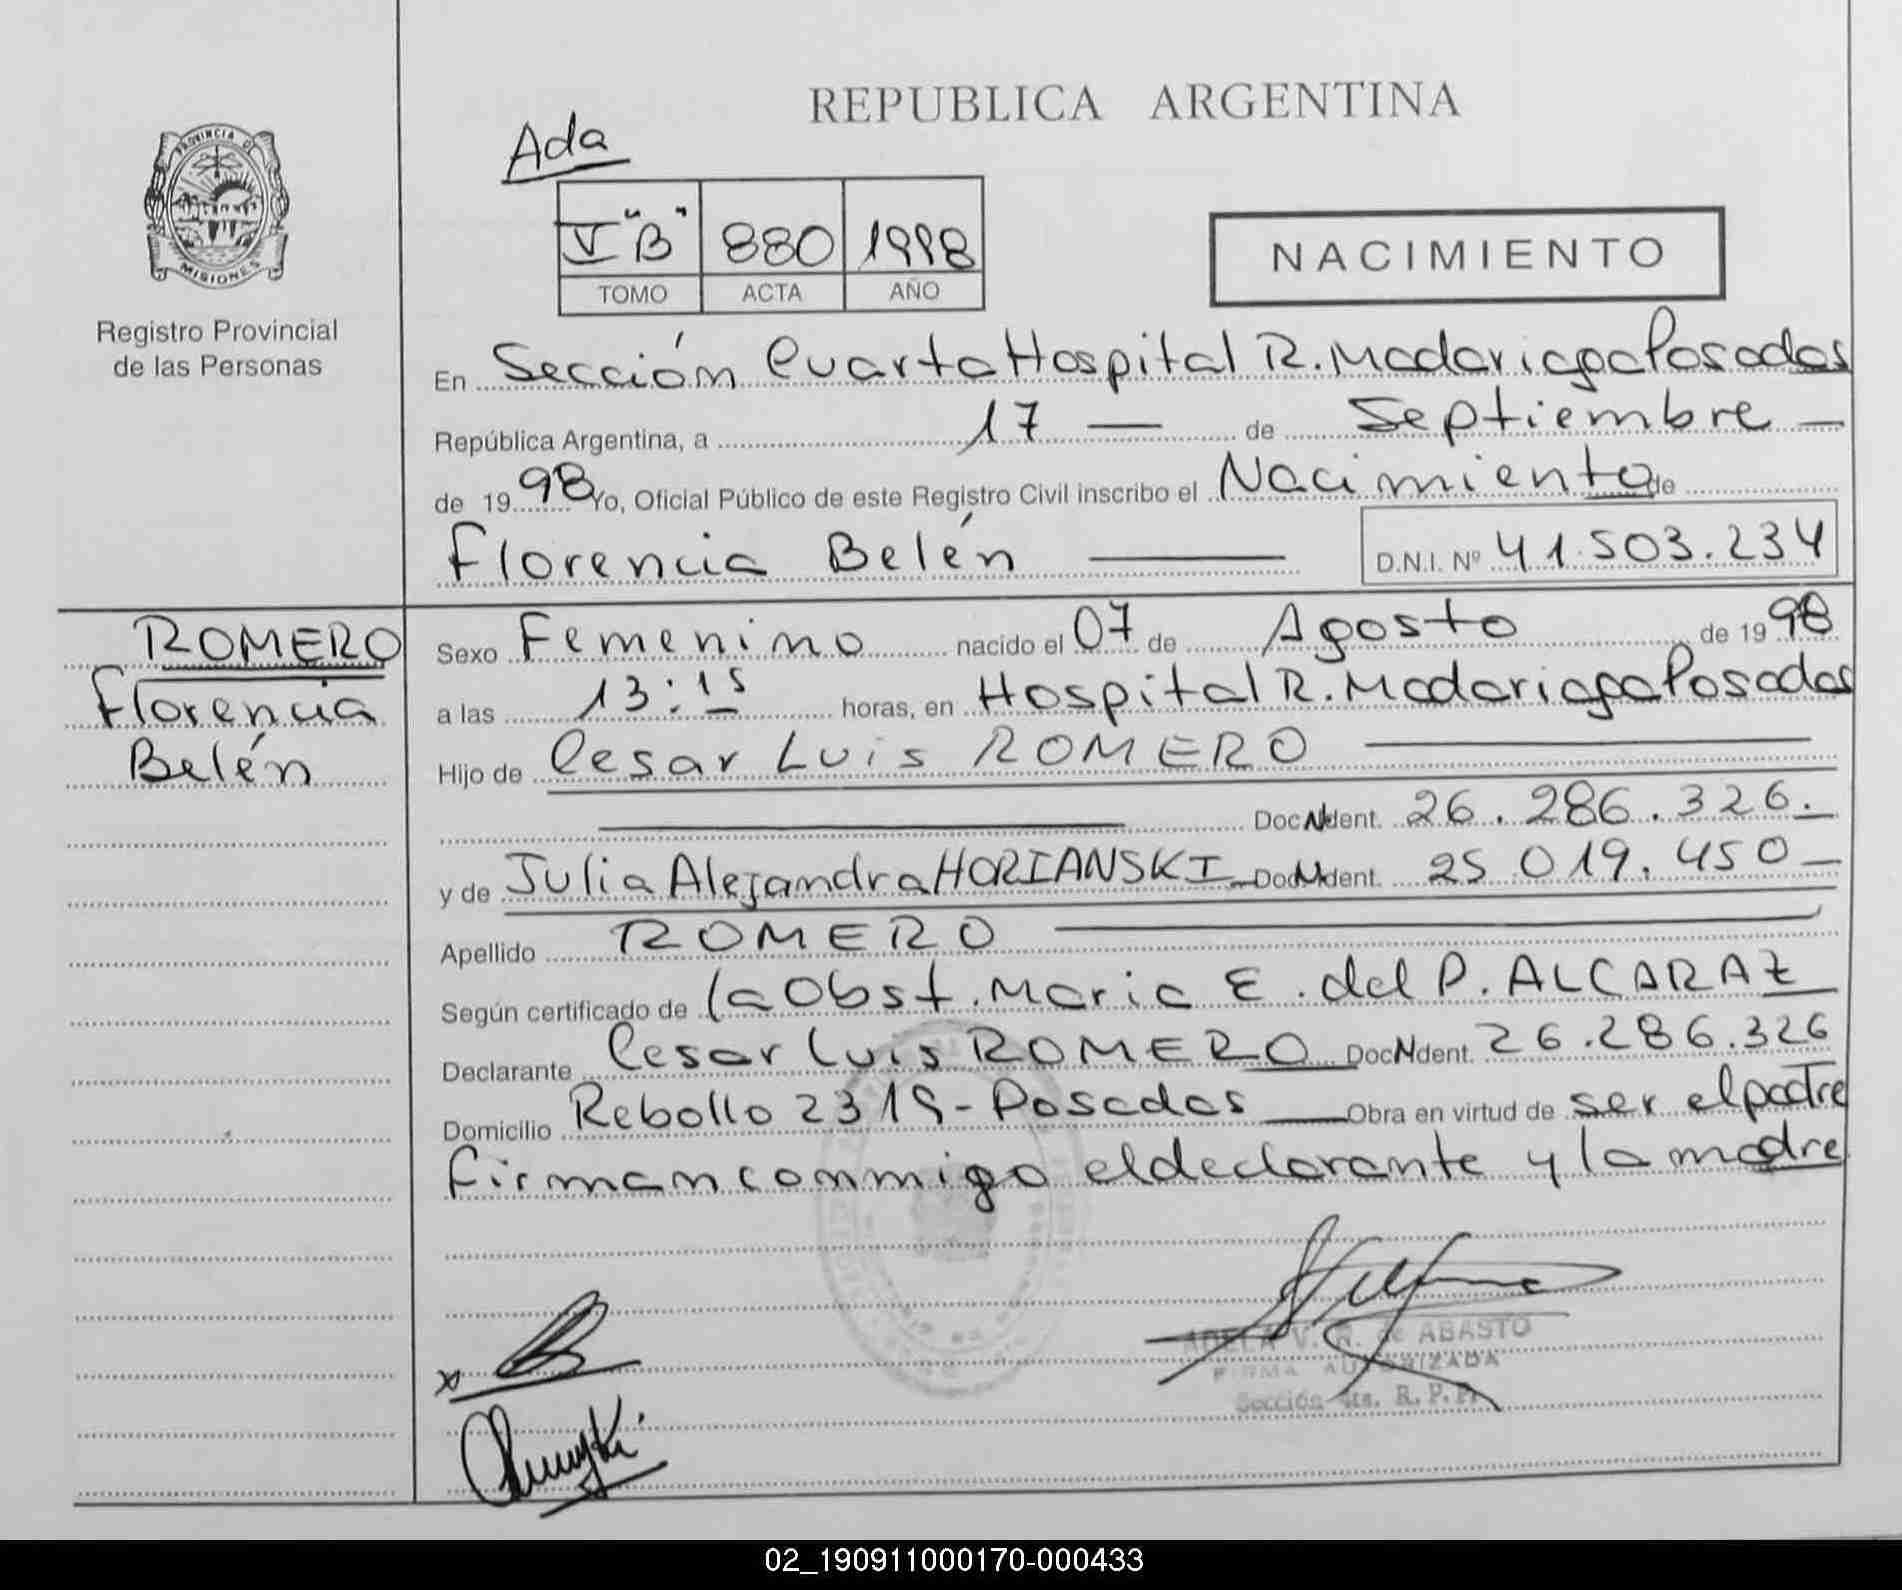 REPUBLICA ARGENTINA
Ada
V "B" 880 1998
TOMO ACTA AÑO
NACIMIENTO
PROVINCIA DE
MISIONES
Registro Provincial
de las Personas
En Sección Cuarta Hospital R. Madariaga Posadas
República Argentina, a 17 — de Septiembre —
de 1998 Yo, Oficial Público de este Registro Civil inscribo el Nacimiento de
Florencia Belén —— D.N.I. Nº 41.503.234
ROMERO
Florencia
Belén
Sexo Femenino nacido el 07 de Agosto de 1998
a las 13:15 horas, en Hospital R. Madariaga Posadas
Hijo de Cesar Luis ROMERO ——
—— Doc. N. Ident. 26.286.326.—
y de Julia Alejandra HORIANSKI — Doc. N. Ident. 25 019.450 —
Apellido ROMERO ——
Según certificado de la Obst. Maria E. del P. ALCARAZ
Declarante Cesar Luis ROMERO — Doc. N. Ident. 26.286.326
Domicilio Rebollo 2319 - Posadas — Obra en virtud de ser el padre
firman conmigo el declarante y la madre
ADELA V. R. de ABASTO
FIRMA AUTORIZADA
Sección 4ta. R.P.P.
02_190911000170-000433